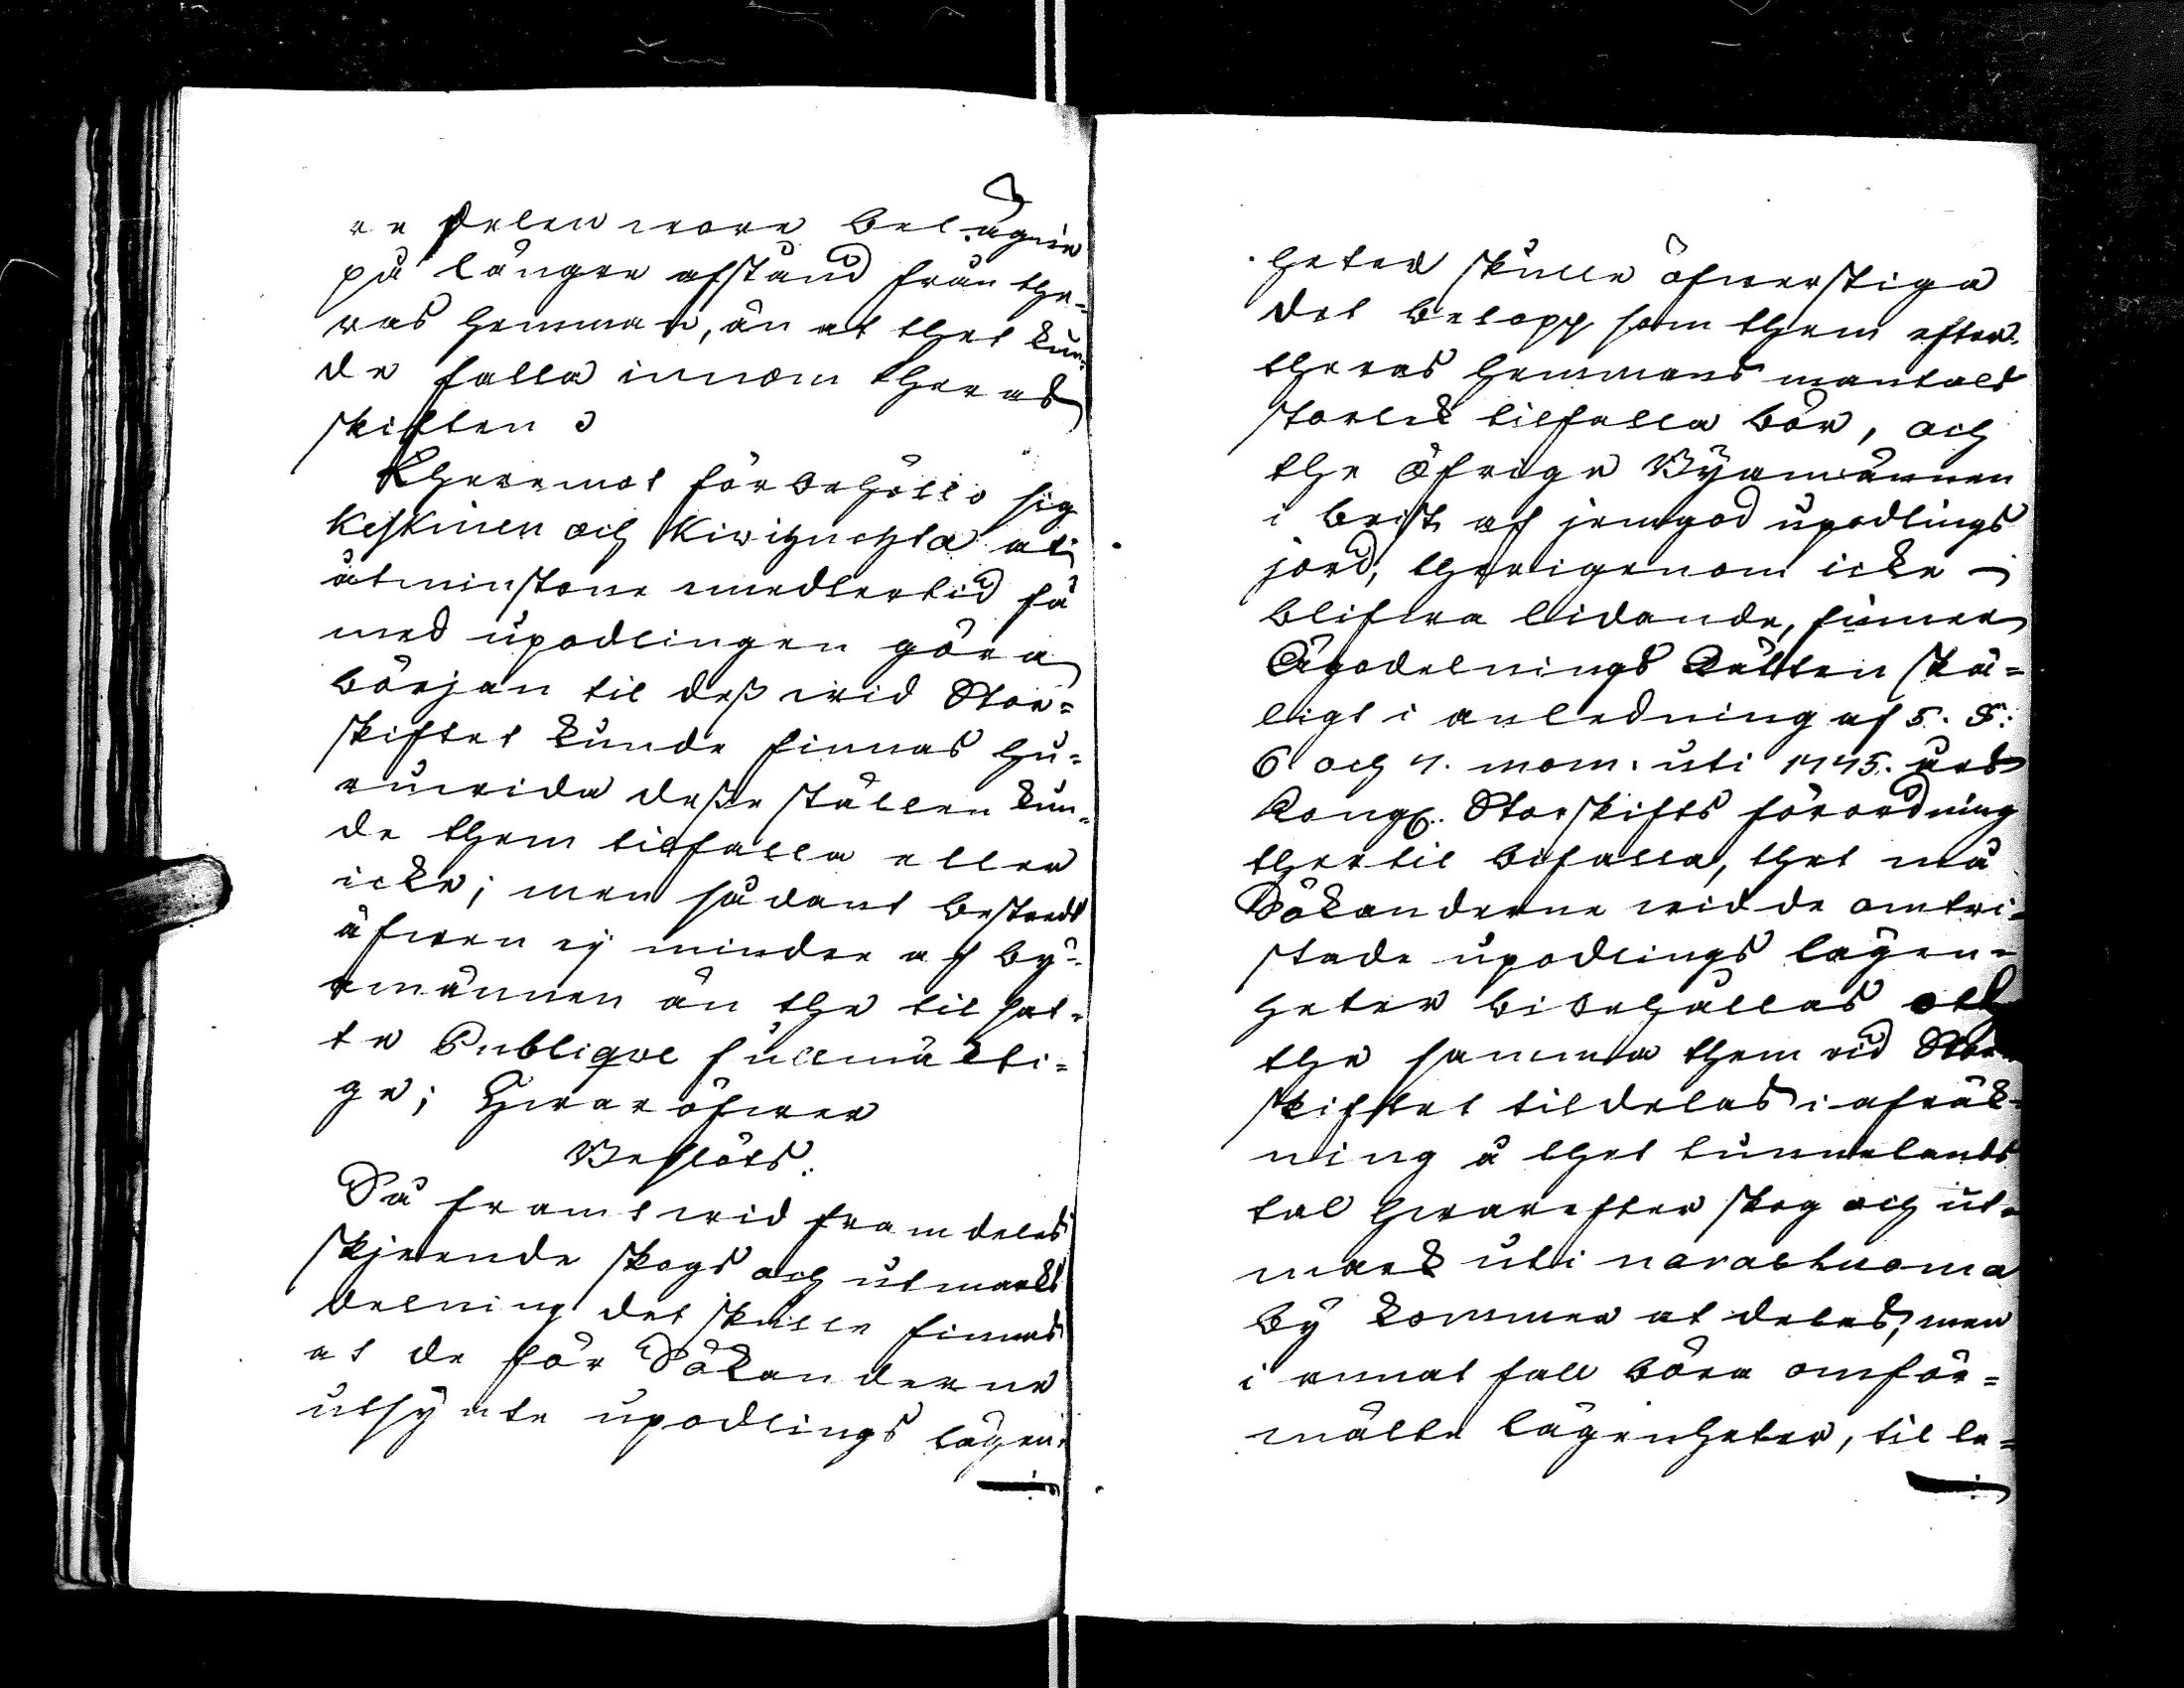 re delen wore belägne
på längre afstånd från the-
ras hemman, än at thet kun-
de falla innom theras
skiften
Theremot förbehöllo sig
Keskinen och Kiwihuchta at
åtminstone emedlertid få
med upodlingen göra
början til dess wid Stor=
skiftet kunde finnas hu=
ruwida desse ställen kun-
de them tilfalla eller
icke; men sådant bestreds
äfwen ej mindre af by-
amännen än the til sat-
te Publique fullmäkti=
ge; Hwaröfwer
Beslöts:
Så framt wid framdeles
skjeende skogs och utmarks
delning det skulle finnas
at de för Sökanderne
utsynte upodlings lägen-
heter skulle öfwerstiga
det belopp som them efter
theras hemmans mantals
storlek tilfalla bör, och
the öfrige Byamännen
i brist af jemgod upodlings
jord, therigenom icke
blifwa lidande, finner
Ägodelnings Rätten skä=
ligt i anledning af 5. §:
6 och 7. mom. uti 1775. års
Kongl. Storskifts förordning
thertil bifalla, thet må
Sökanderne wid de omtwi-
stade upodlings lägen-
heter bibehållas och
the samma them vid Stor
skiftet tildelas i afräk-
ning å thet tunnelands
tal hwarefter skog och ut-
mark uti narabtuoma
by kommer at delas, men
i annat fall böra omför=
mälte lägenheter, til le=